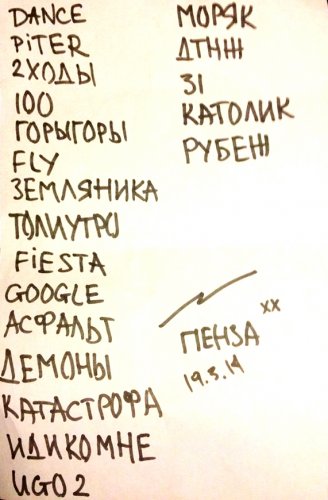 DANCE
PiTER
2ХОДЫ
100
ГОРЫГОРЫ
FLY
ЗЕМЛЯНИКА
ТОЛИУТРО
FiESTA
GOOGLE
АСФАЛЬТ
ДЕМОНЫ
КАТАСТРОФА
ИДИКОМНЕ
UGO 2
МОРЯК
ДТНЖ
31
КАТОЛИК
РУБЕЖ
xx
ПЕНЗА
19.3.14